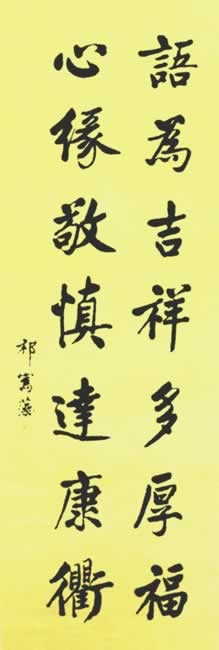 語為吉祥多厚福
心緣敬慎達康衢
祁寯藻